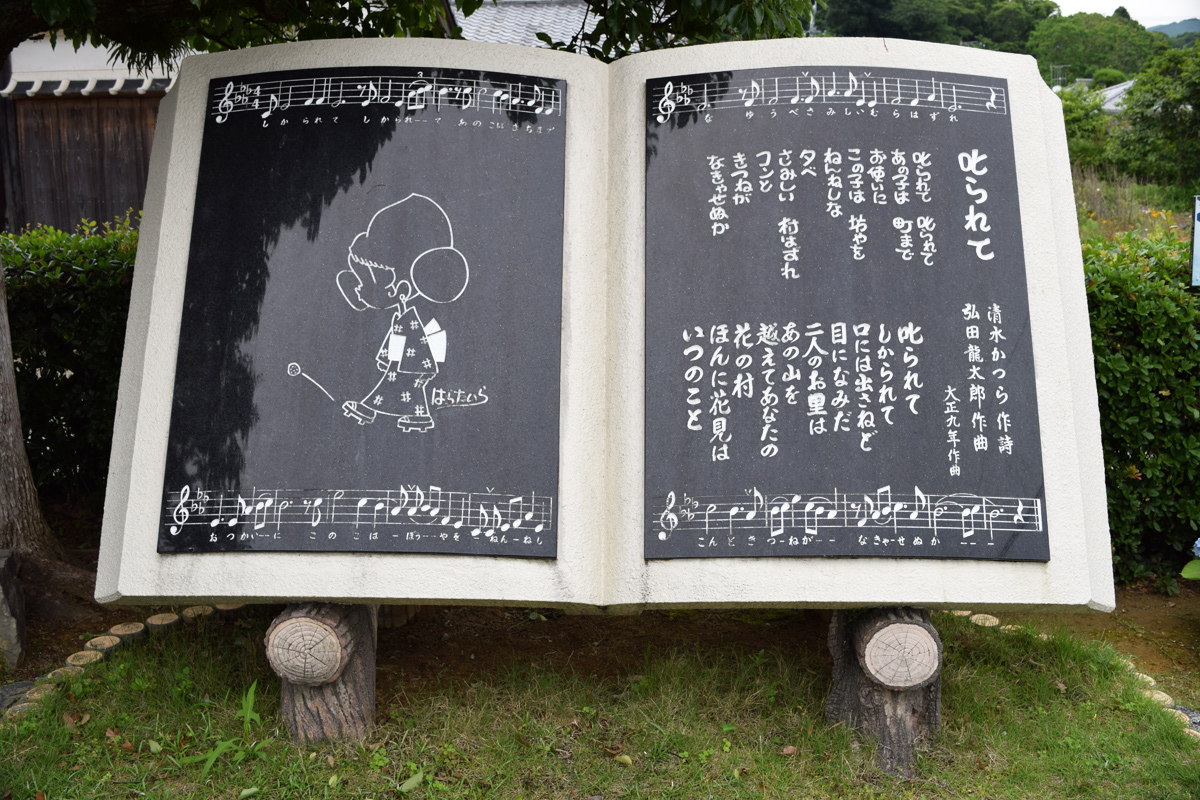 しかられて しかられ--て あのこはまちまで
おつかい--に このこは-ぼう--やを ねん-ねし
はらたいら
な ゆうべさみしいむらはずれ
叱られて
清水かつら 作詩
弘田龍太郎 作曲
大正九年作曲
叱られて 叱られて
あの子は 町まで
お使いに
この子は 坊やを
ねんねしな
夕べ
さみしい 村はずれ
コンと
きつねが
なきゃせぬか
叱られて
しかられて
口には出さねど
目になみだ
二人のお里は
あの山を
越えてあなたの
花の村
ほんに花見は
いつのこと
こんときつ-ねが-- なきゃ-せぬか ---